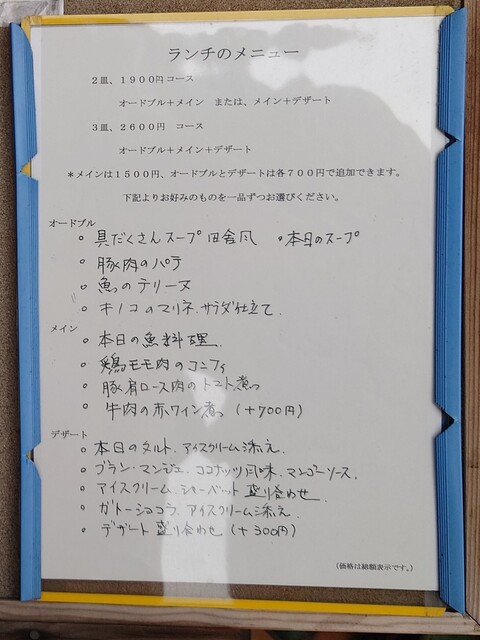 ランチのメニュー
２皿、１９００円 コース
オードブル＋メイン または、メイン＋デザート
３皿、２６００円 コース
オードブル＋メイン＋デザート
＊メインは１５００円、オードブルとデザートは各７００円で追加できます。
下記よりお好みのものを一品ずつお選びください。
オードブル
。具だくさんスープ田舎風 。本日のスープ
。豚肉のパテ
。魚のテリーヌ
。キノコのマリネ、サラダ仕立て、
メイン
。本日の魚料理、
。鶏モモ肉のコンフィ
。豚肩ロース肉のトマト煮
。牛肉の赤ワイン煮 (＋700円)
デザート
。本日のタルト、アイスクリーム添え、
。ブラン・マンジェ、ココナッツ風味、マンゴーソース、
。アイスクリーム、シャーベット盛り合わせ
。ガトーショコラ、アイスクリーム添え
。デザート盛り合わせ (＋300円)
（価格は総額表示です。）